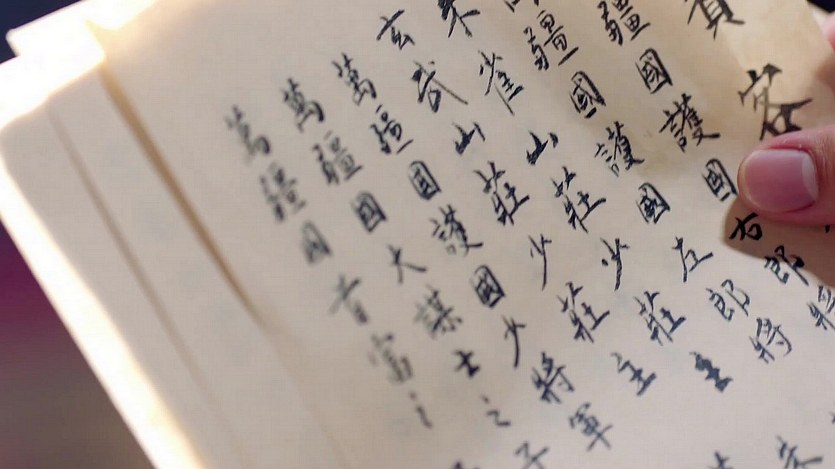 客
疆國護國右郎將
疆國護國左郎將
朱雀山莊少莊主
玄武山莊少莊主
萬疆國護國少將軍
萬疆國大謀士之子
萬疆國首富之